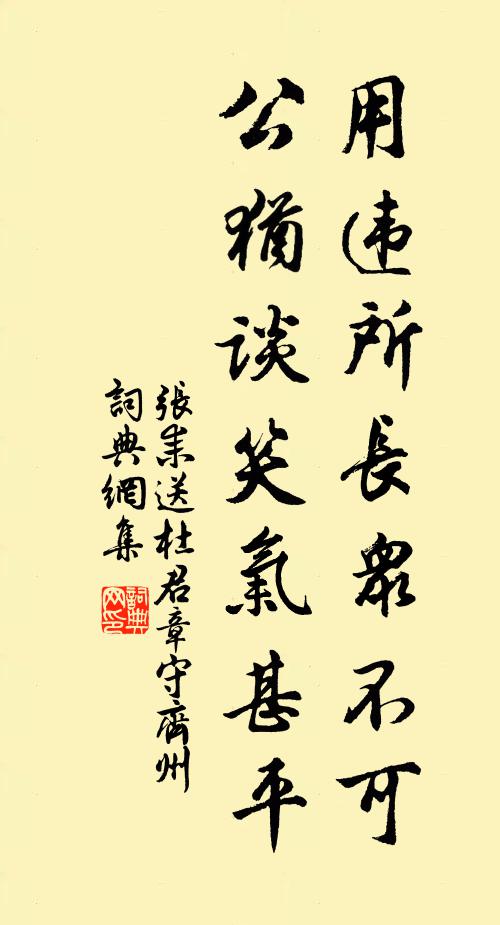 用违所長衆不可
公猶谈笑氣甚平
張耒送杜君章守齊州
詞典網集
詞典网印